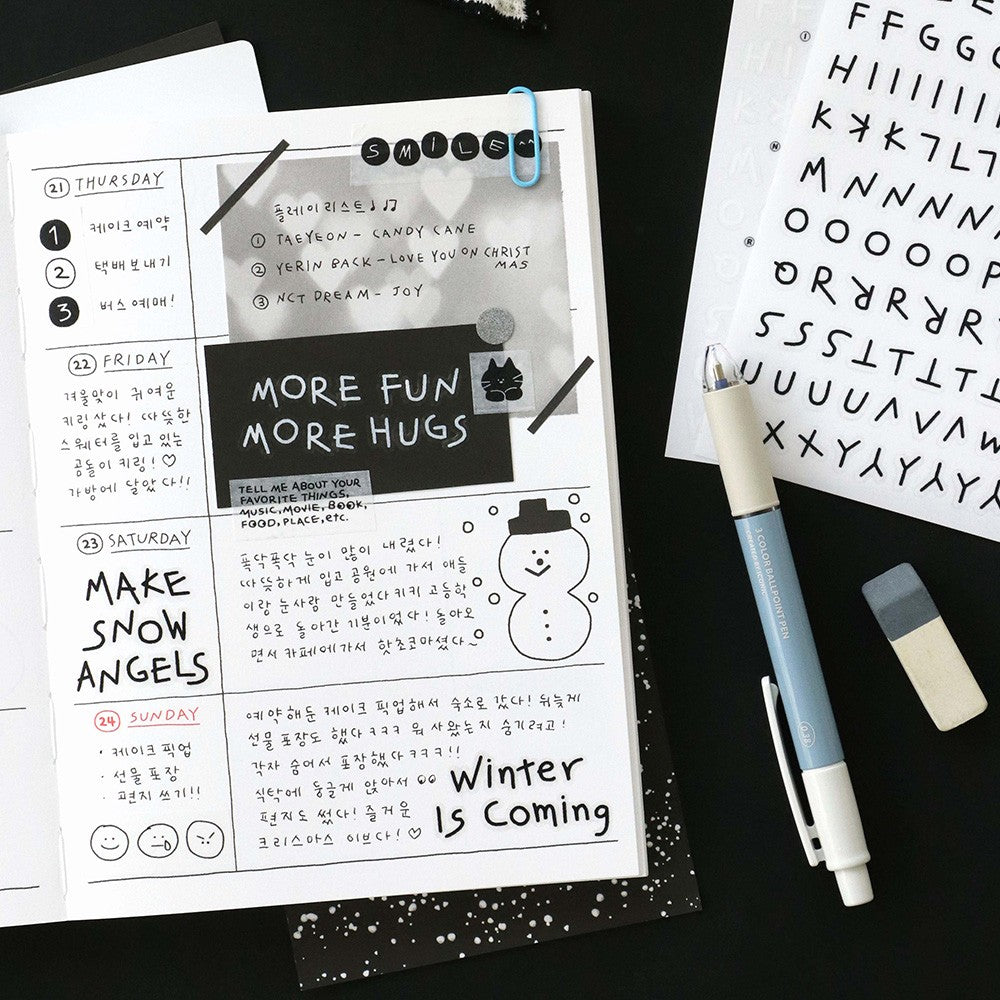 SMILE^^
21 THURSDAY
1 케이크 예약
2 택배 보내기
3 버스 예매!
플레이리스트♩♫
① TAEYEON - CANDY CANE
② YERIN BACK - LOVE YOU ON CHRIST
MAS
③ NCT DREAM - JOY
22 FRIDAY
겨울맞이 귀여운
키링 샀다! 따뜻한
스웨터를 입고 있는
곰돌이 키링!♡
가방에 달았다!!
MORE FUN
MORE HUGS
TELL ME ABOUT YOUR
FAVORITE THINGS,
MUSIC, MOVIE, BOOK,
FOOD, PLACE, etc.
23 SATURDAY
MAKE
SNOW
ANGELS
폭닥폭닥 눈이 많이 내렸다!
따뜻하게 입고 공원에 가서 애들
이랑 눈사람 만들었다키키 고등학
생으로 돌아간 기분이었다! 돌아오
면서 카페에가서 핫초코마셨다~
24 SUNDAY
· 케이크 픽업
· 선물 포장
· 편지 쓰기!!
예약해둔 케이크 픽업해서 숙소로 갔다! 뒤늦게
선물 포장도 했다ㅋㅋㅋ 뭐 사왔는지 숨기려고!
각자 숨어서 포장했다ㅋㅋㅋ!!
식탁에 둥글게 앉아서
편지도 썼다! 즐거운
크리스마스 이브다!♡
Winter
Is Coming
FFGGG
HIIIIIII
KKKLL
MNNNN
OOOOOP
QRRRRR
SSSSTTTT
UUUUVVW
XXYYYYY
3 COLOR BALLPOINT PEN
CREATED BY ICONIC
0.38